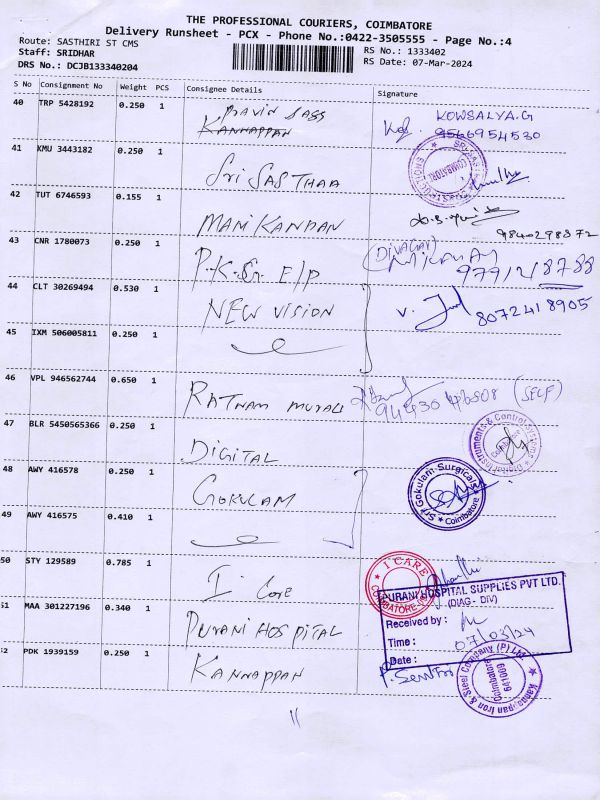 THE PROFESSIONAL COURIERS, COIMBATORE
Delivery Runsheet - PCX - Phone No.:0422-3505555 - Page No.:4
Route: SASTHIRI ST CMS
Staff: SRIDHAR
DRS No.: DCJB133340204
RS No.: 1333402
RS Date: 07-Mar-2024
S No Consignment No Weight PCS Consignee Details Signature
40 TRP 5428192 0.250 1
KANNAPPAN
KOWSALYA.G
9566954530
41 KMU 3443182 0.250 1 Sri SASTHAA
COIMBATORE
42 TUT 6746593 0.155 1 MANIKANDAN
9840298372
43 CNR 1780073 0.250 1 P.K.G E/P
44 CLT 30269494 0.530 1 NEW VISION
8072418905
45 IXM 506005811 0.250 1
46 VPL 946562744 0.650 1 RATNAM MURALI
(SELF)
47 BLR 5450565366 0.250 1 DIGITAL
Digital Instruments & Control Systems
48 AWY 416578 0.250 1 GOKULAM
Sri Gokulam Surgicals
Coimbatore
49 AWY 416575 0.410 1
50 STY 129589 0.785 1 I Care
I CARE
COIMBATORE
51 MAA 301227196 0.340 1 PURANI HOSPITAL
PURANI HOSPITAL SUPPLIES PVT LTD.
(DIAG - DIV)
Received by :
Time :
Date :
07/03/24
52 PDK 1939159 0.250 1 KANNAPPAN
Kanappan Iron & Steel Company (P) Ltd.
Coimbatore
641009